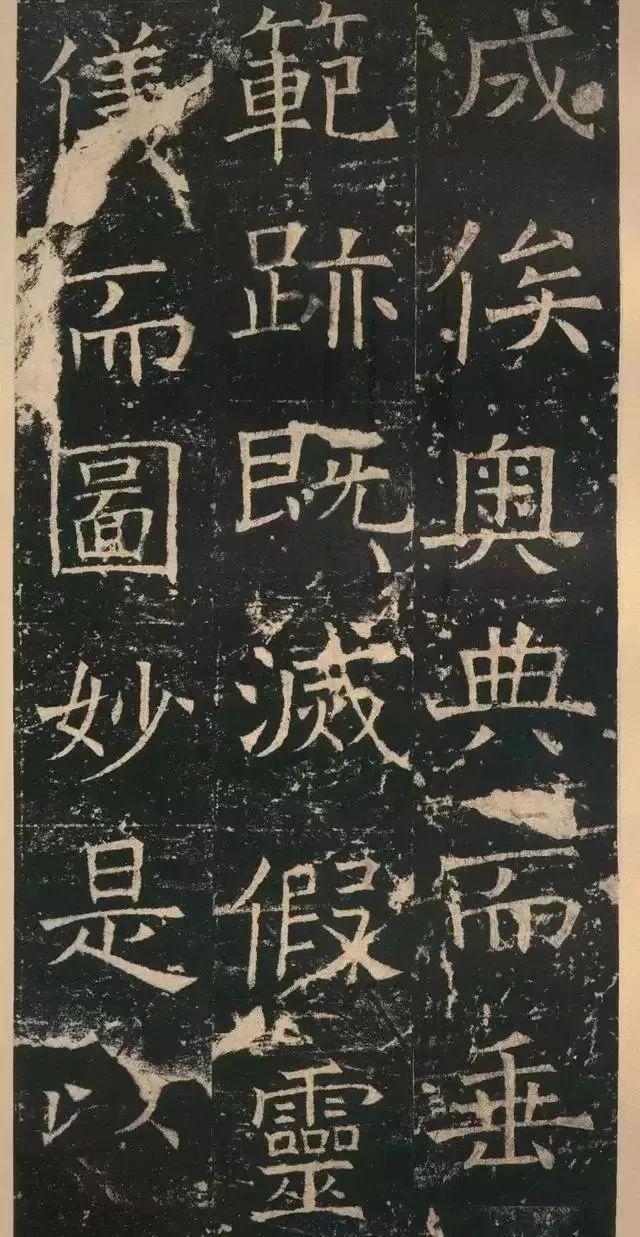 咸俟奧典而垂
範跡既滅假靈
儀而圖妙是以